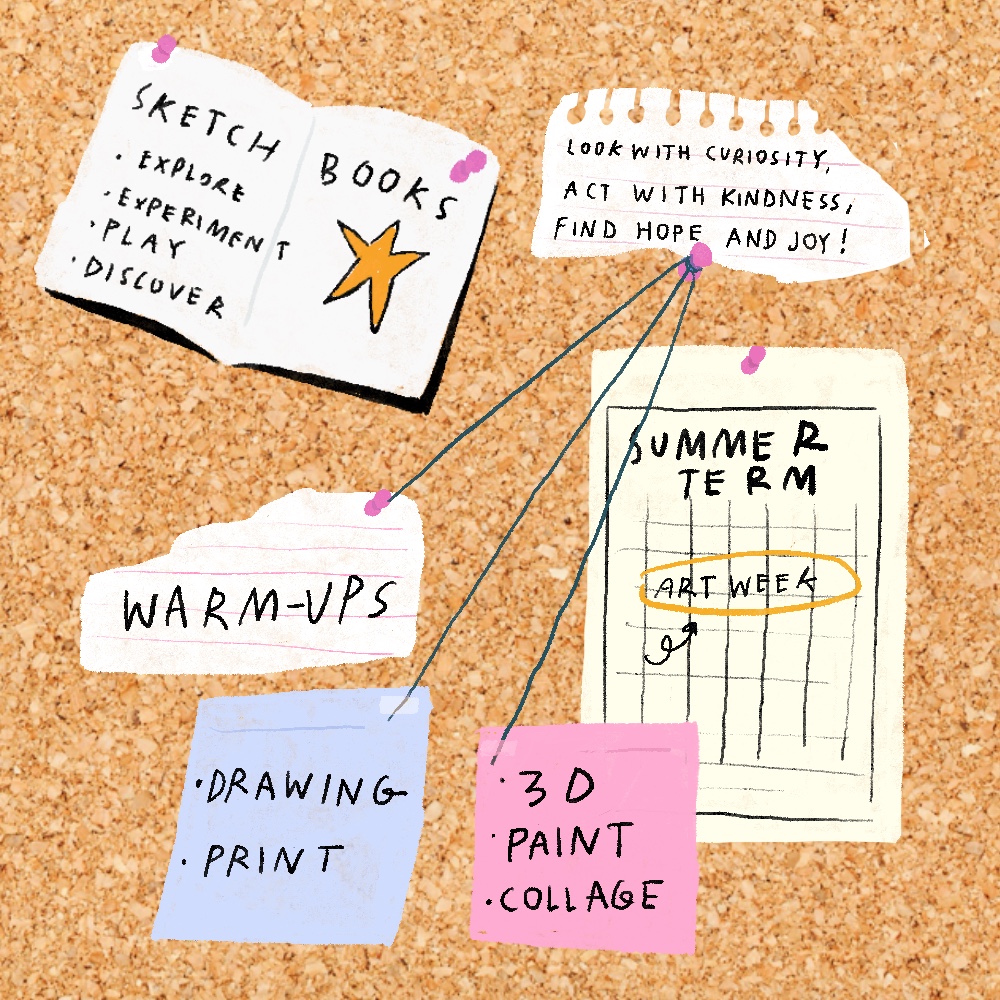 SKETCH BOOKS
· EXPLORE
· EXPERIMENT
· PLAY
· DISCOVER
LOOK WITH CURIOSITY,
ACT WITH KINDNESS,
FIND HOPE AND JOY!
SUMMER
TERM
ART WEEK
WARM-UPS
· DRAWING
· PRINT
· 3D
· PAINT
· COLLAGE